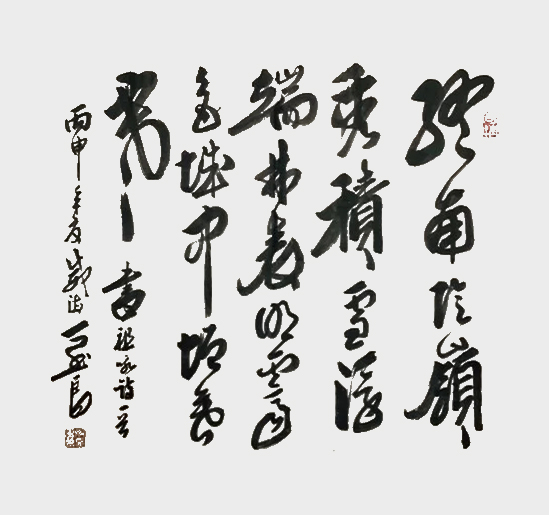 終南陰嶺
秀積雪浮
端林表明霽
色城中增暮
寒 書祖詠詩一首
丙申年夏